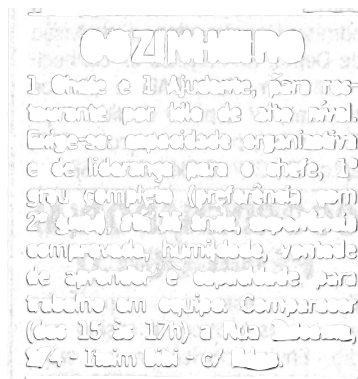 COZINHEIRO
1 Chefe e 1 Ajudante, para res-
taurante por kilo de alto nível.
Exige-se: capacidade organizativa
e de liderança para o chefe, 1º
grau completo (preferência com
2º grau), até anos, experiência
comprovada, humildade, vontade
de aprender e capacidade para
trabalho em equipe. Comparecer
(das 15 às 17h) a Rua
Itaim Bibi - c/